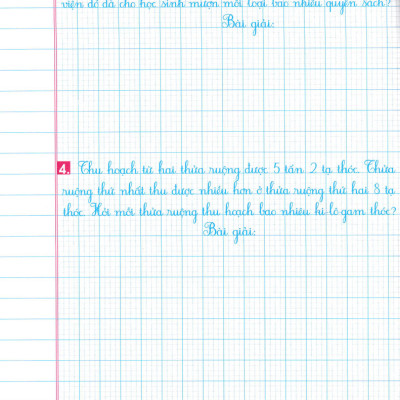 viện đó đã cho học sinh mượn mỗi loại bao nhiêu quyển sách?
Bài giải:
4. Thu hoạch từ hai thửa ruộng được 5 tấn 2 tạ thóc. Thửa
ruộng thứ nhất thu được nhiều hơn ở thửa ruộng thứ hai 8 tạ
thóc. Hỏi mỗi thửa ruộng thu hoạch bao nhiêu ki-lô-gam thóc?
Bài giải: